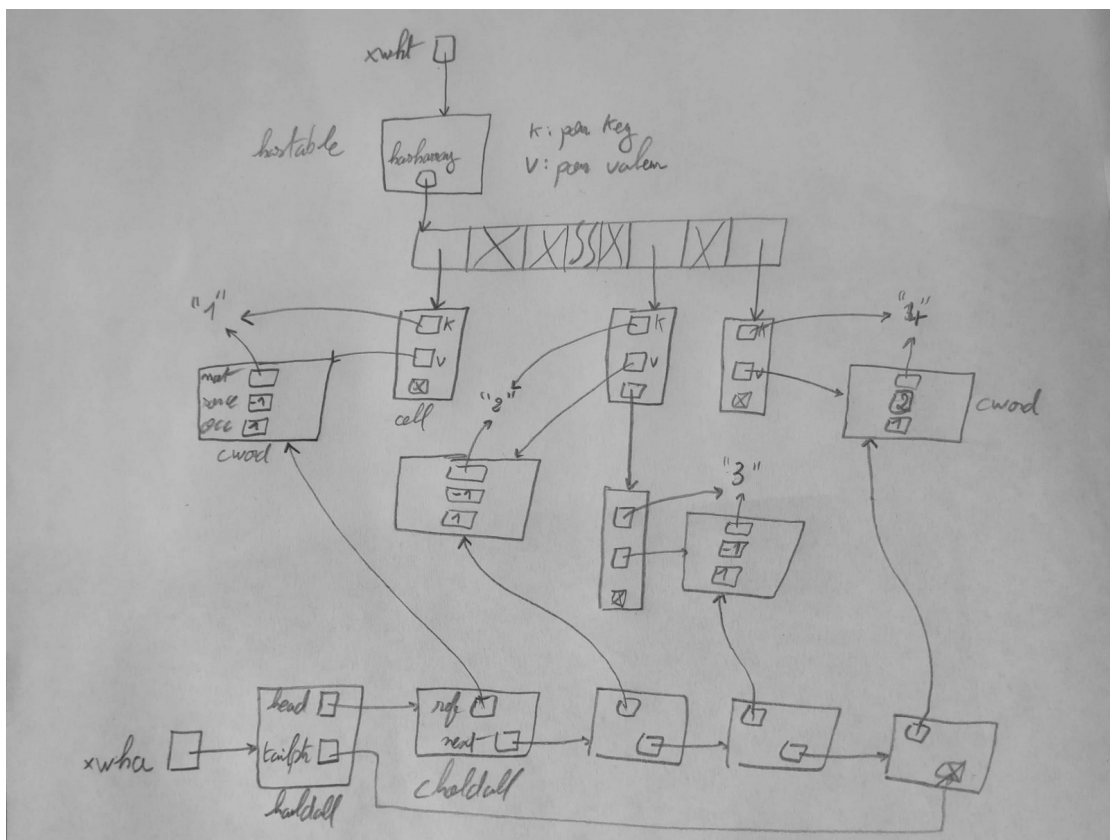 xwht
hastable
hasharray
K: pour key
V: pour valeur
"1"
K
V
cell
mot
-1
occ
1
cword
K
V
"2"
-1
1
"3"
-1
1
K
V
2
1
cword
xwha
head
tailptr
holdall
ref
next
choldall